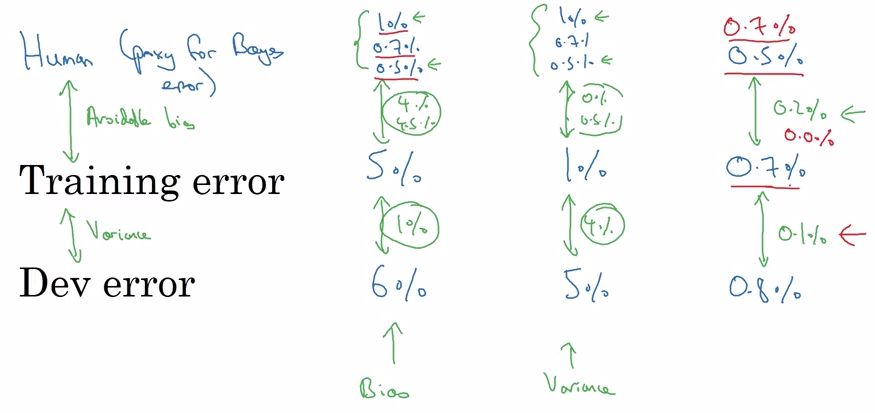 1% ← 1% ← 0.7%
Human (proxy for Bayes 0.7% 0.7% 0.5%
error) 0.5% ← 0.5% ←
Avoidable bias 4% 0% 0.2% ←
4.5% 0.5% 0.0%
Training error 5% 1% 0.7%
Variance 1% 4% 0.1% ←
Dev error 6% 5% 0.8%
Bias Variance